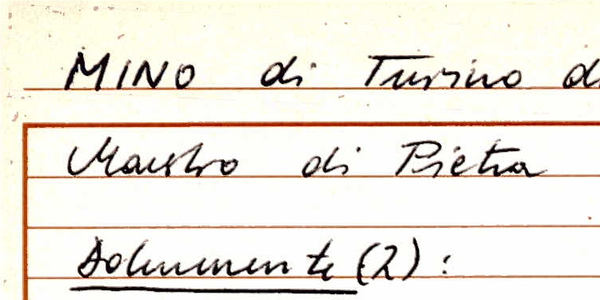 MINO di Turino d
Maestro di Pietra
Dokumente (2):